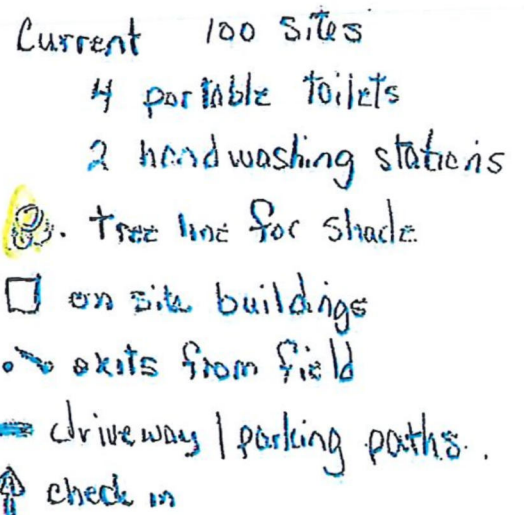 Current 100 sites
4 portable toilets
2 handwashing stations
. tree line for shade
on site buildings
exits from field
driveway | parking paths.
check in